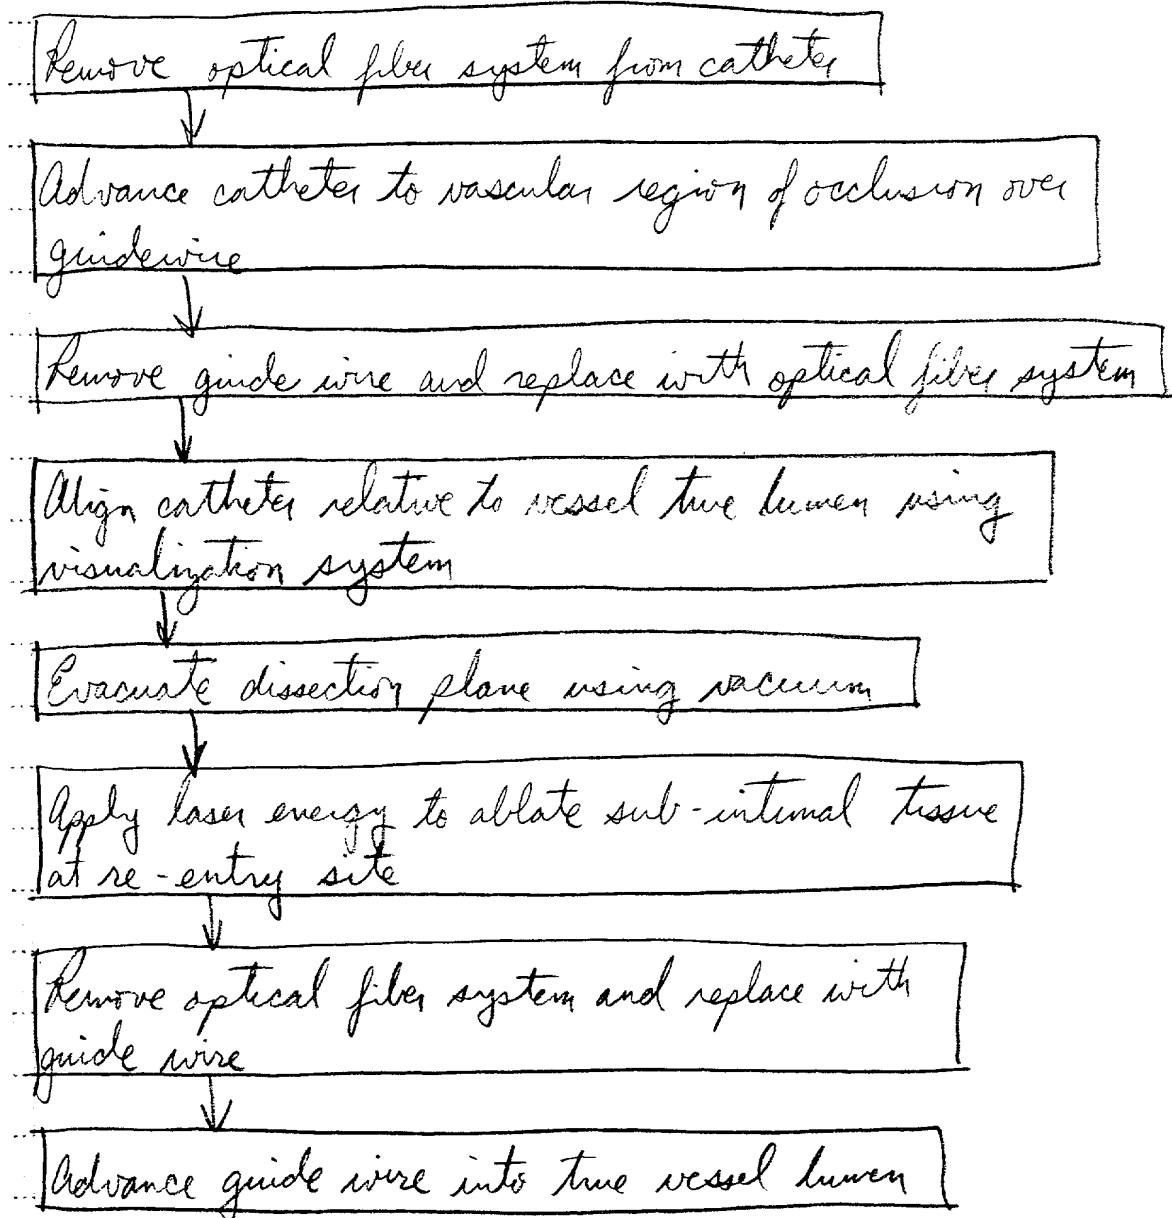 Remove optical fiber system from catheter
Advance catheter to vascular region of occlusion over
guidewire
Remove guide wire and replace with optical fiber system
Align catheter relative to vessel true lumen using
visualization system
Evacuate dissection plane using vacuum
Apply laser energy to ablate sub-intimal tissue
at re-entry site
Remove optical fiber system and replace with
guide wire
Advance guide wire into true vessel lumen